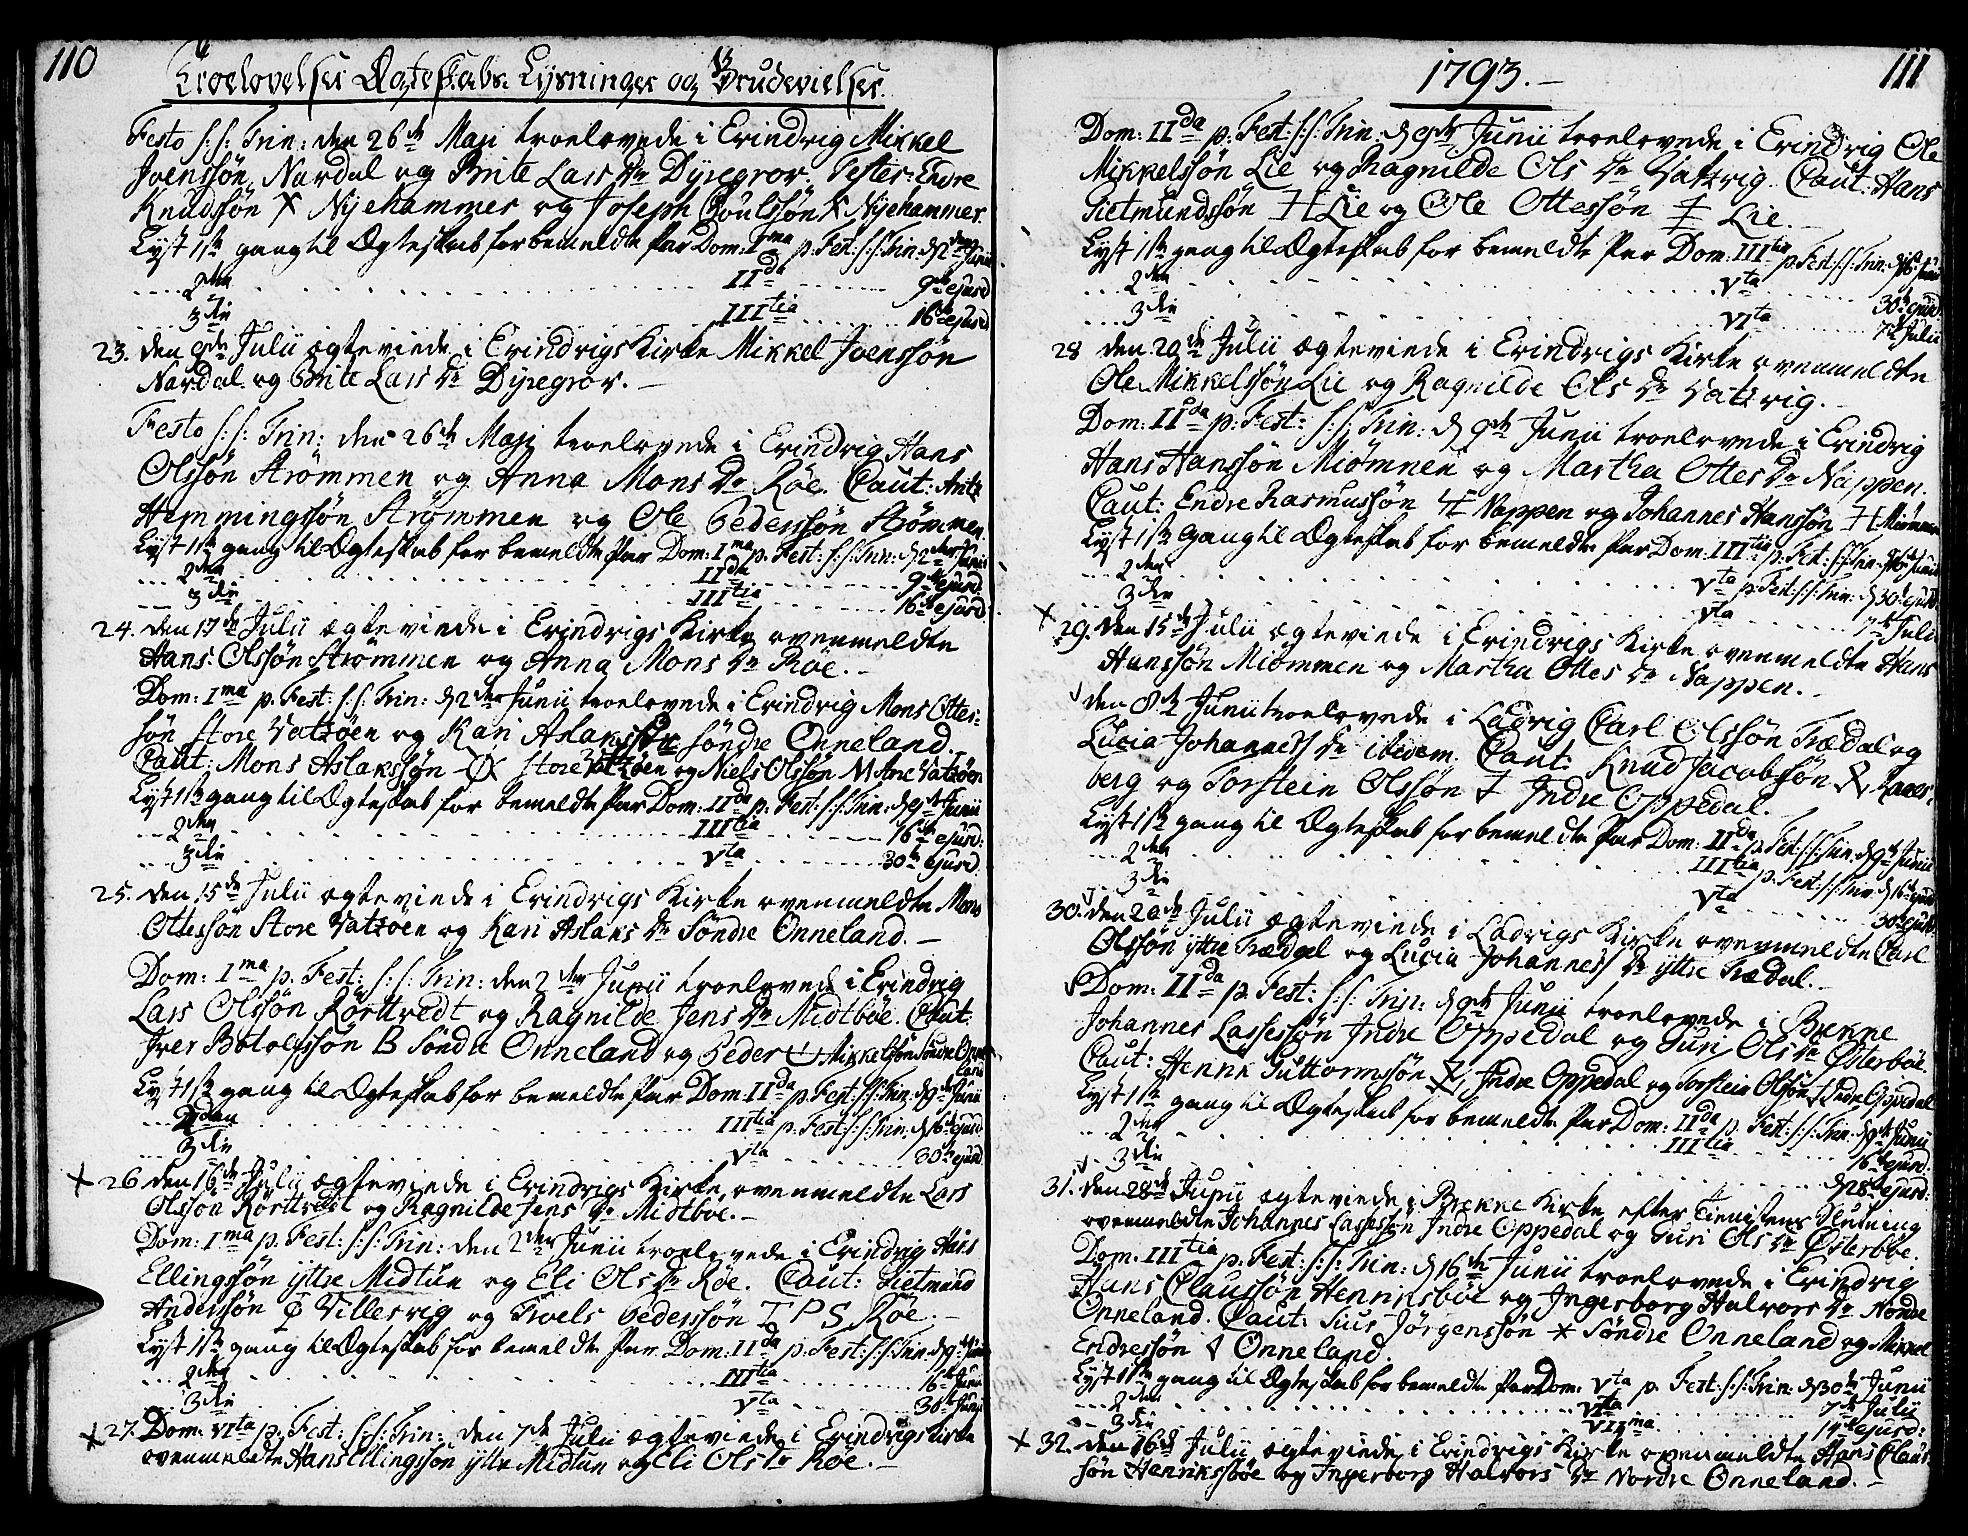 110
Troelovelser Ægteskabs-Lysninger og Brudevielser.
Festo S:S: Trin: den 26de Maji troelovede i Erindrig Mikkel
Joenssön Nardal og Brite Lars Dr Dyregror. Tester: Endre
Knudssön X Nyehammer og Joseph Poulssön X Nyehammer.
Lyst 1ste gang til Ægteskab for bemeldte Par Dom: Ima p: Fest: S:S: Trin: d 2den Junii
2den IIda 9de ejusd
3die IIItia 16de ejusd
23. den 9de Julii ægteviede i Erindrigs Kirke Mikkel Joenssön
Nardal og Brite Lars Dr Dyregror.
Festo S:S: Trin: den 26de Maji troelovede i Erindrig Hans
Olssön Strömmen og Anna Mons Dr Röe. Caut: Antz
Hemmingssön Strömmen og Ole Pederssön Strömmen.
Lyst 1ste gang til Ægteskab for bemeldte Par Dom: Ima p: Fest: S:S: Trin: d 2den Junii
2den IIda 9de ejusd.
3die IIItia 16de ejusd.
24. den 17de Julii ægteviede i Erindrigs Kirke ovenmeldte
Hans Olssön Strömmen og Anna Mons Dr Röe.
Dom: Ima p. Fest: S:S: Trin: d 2den Junii troelovede i Erindrig Mons Ottes-
sön Store Vatzöen og Kari Aslaks Dr Söndre Önneland.
Caut: Mons Aslakssön Store Vatzöen og Niels Olssön Vatzöen
Lyst 1ste gang til Ægteskab for bemeldte Par Dom: IIda p: Fest: S:S: Trin: d 9de Junii
2den IIItia 16de ejusd:
3die Vta 30te ejusd.
25. den 15de Julii ægteviede i Erindrigs Kirke ovenmeldte Mons
Ottessön Store Vatzöen og Kari Aslaks Dr Söndre Önneland.
Dom: Ima p: Fest: S:S: Trin: den 2den Junii troelovede i Erindrig
Lars Olssön Rörtvedt og Ragnilde Jens Dr Midtböe. Caut.
Iver Botolfssön B Söndre Önneland og Peder Mikkelssön Söndre Önne-
land
Lyst 1ste gang til Ægteskab for bemeldte Par Dom: IIda p: Fest: S:S: Trin: d 9de Junii
2den IIItia p: Fest: S:S: Trin: d 16de ejusd
3die Vta 30te ejusd.
26 den 16de Julii ægteviede i Erindrigs Kirke ovenmeldte Lars
Olssön Rörtvedt og Ragnilde Jens Dr Midtböe.
Dom: Ima p: Fest: S:S: Trin: den 2den Junii troelovede i Erindrig Hans
Ellingssön yttre Midtun og Eli Ols Dr Röe. Caut: Gietmund
Anderssön Villesvig og Troels Pederssön T P S Röe.
Lyst 1ste gang til Ægteskab for bemeldte Par Dom: IIda p: Fest: S:S: Trin: d 9de Junii
2den IIItia 16de Junii
3die Vta 30te Junii
27. Dom: VIta p: Fest: S:S: Trin: den 7de Julii ægteviede i Erindrigs Kirke
ovenmeldte Hans Ellingssön yttre Midtun og Eli Ols Dr Röe.
1793.
111
Dom: IIda p. Fest: S:S: Trin: d 9de Junii troelovede i Erindrig Ole
Mikkelssön Lie og Ragnilde Ols Dr Vatzvig. Caut: Hans
Gietmundssön H Lie og Ole Ottessön Lie
Lyst 1ste gang til Ægteskab for bemeldte Par Dom: IIItia p. Fest: S:S: Trin: d 16de Junii
2den Vta 30te ejusd.
3die VIta 7de Julii
28 den 20de Julii ægteviede i Erindrigs Kirke ovenmeldte
Ole Mikkelssön Lie og Ragnilde Ols Dr Vatzvig.
Dom: IIda p: Fest: S:S: Trin: d 9de Junii troelovede i Erindrig
Hans Hanssön Miömmen og Martha Ottes Dr Nappen.
Caut: Endre Rasmussön Nappen og Johannes Hanssön H Miömmen
Lyst 1ste gang til Ægteskab for bemeldte Par Dom: IIItia p: Fest: S:S: Trin: d 16de Junii
2den Vta p: Fest: S:S: Trin: d 30te ejusd.
3die Vta 7de Julii
29. den 15de Julii ægteviede i Erindrigs Kirke ovenmeldte Hans
Hanssön Miömmen og Martha Ottes Dr Nappen.
den 8de Junii troelovede i Ladvig Carl Olssön Trædal og
Lucia Johanness Dr ibidem. Caut: Knud Jacobssön
berg og Torstein Olssön Indre Oppedal.
Lyst 1ste gang til Ægteskab for bemeldte Par Dom: IIda p: Fest: S:S: Trin: d 9de Junii
2den IIItia p: Fest: S:S: Trin: d 16de ejusd
3die Vta 30te ejusd.
30. den 20de Julii ægteviede i Ladvigs Kirke ovenmeldte Carl
Olssön yttre Trædal og Lucia Johanness Dr yttre Trædal.
Dom: IIda p: Fest: S:S: Trin: d 9de Junii troelovede i Brekke
Johannes Lassessön Indre Oppedal og Guri Ols Dr Österböe.
Caut: Henrik Guttormssön Indre Oppedal og Torstein Olssön Indre Oppedal
Lyst 1ste gang til Ægteskab for bemeldte Par Dom: IIda p: Fest: S:S: Trin: d 9de Junii
2den IIItia 16de ejusd:
3die d 28de ejusd:
31. den 28de Junii ægteviede i Brekke Kirke efter Tienistens Slutning
ovenmeldte Johannes Lassessön Indre Oppedal og Guri Ols Dr Österböe.
Dom: IIItia p: Fest: S:S: Trin: d 16de Junii troelovede i Erindrig
Hans Claussön Henriksböe og Ingerborg Halvors Dr Nordre
Önneland. Caut: Siur Jörgenssön Söndre Önneland og Mikkel
Endressön Önneland.
Lyst 1ste gang til Ægteskab for bemeldte Par Dom: Vta p. Fest: S:S: Trin: d 30te Junii
2den VIta 7de Julii
3die VIIma 14de ejusd:
32. den 16de Julii ægteviede i Erindrigs Kirke ovenmeldte Hans Claus-
sön Henriksböe og Ingerborg Halvors Dr Nordre Önneland.